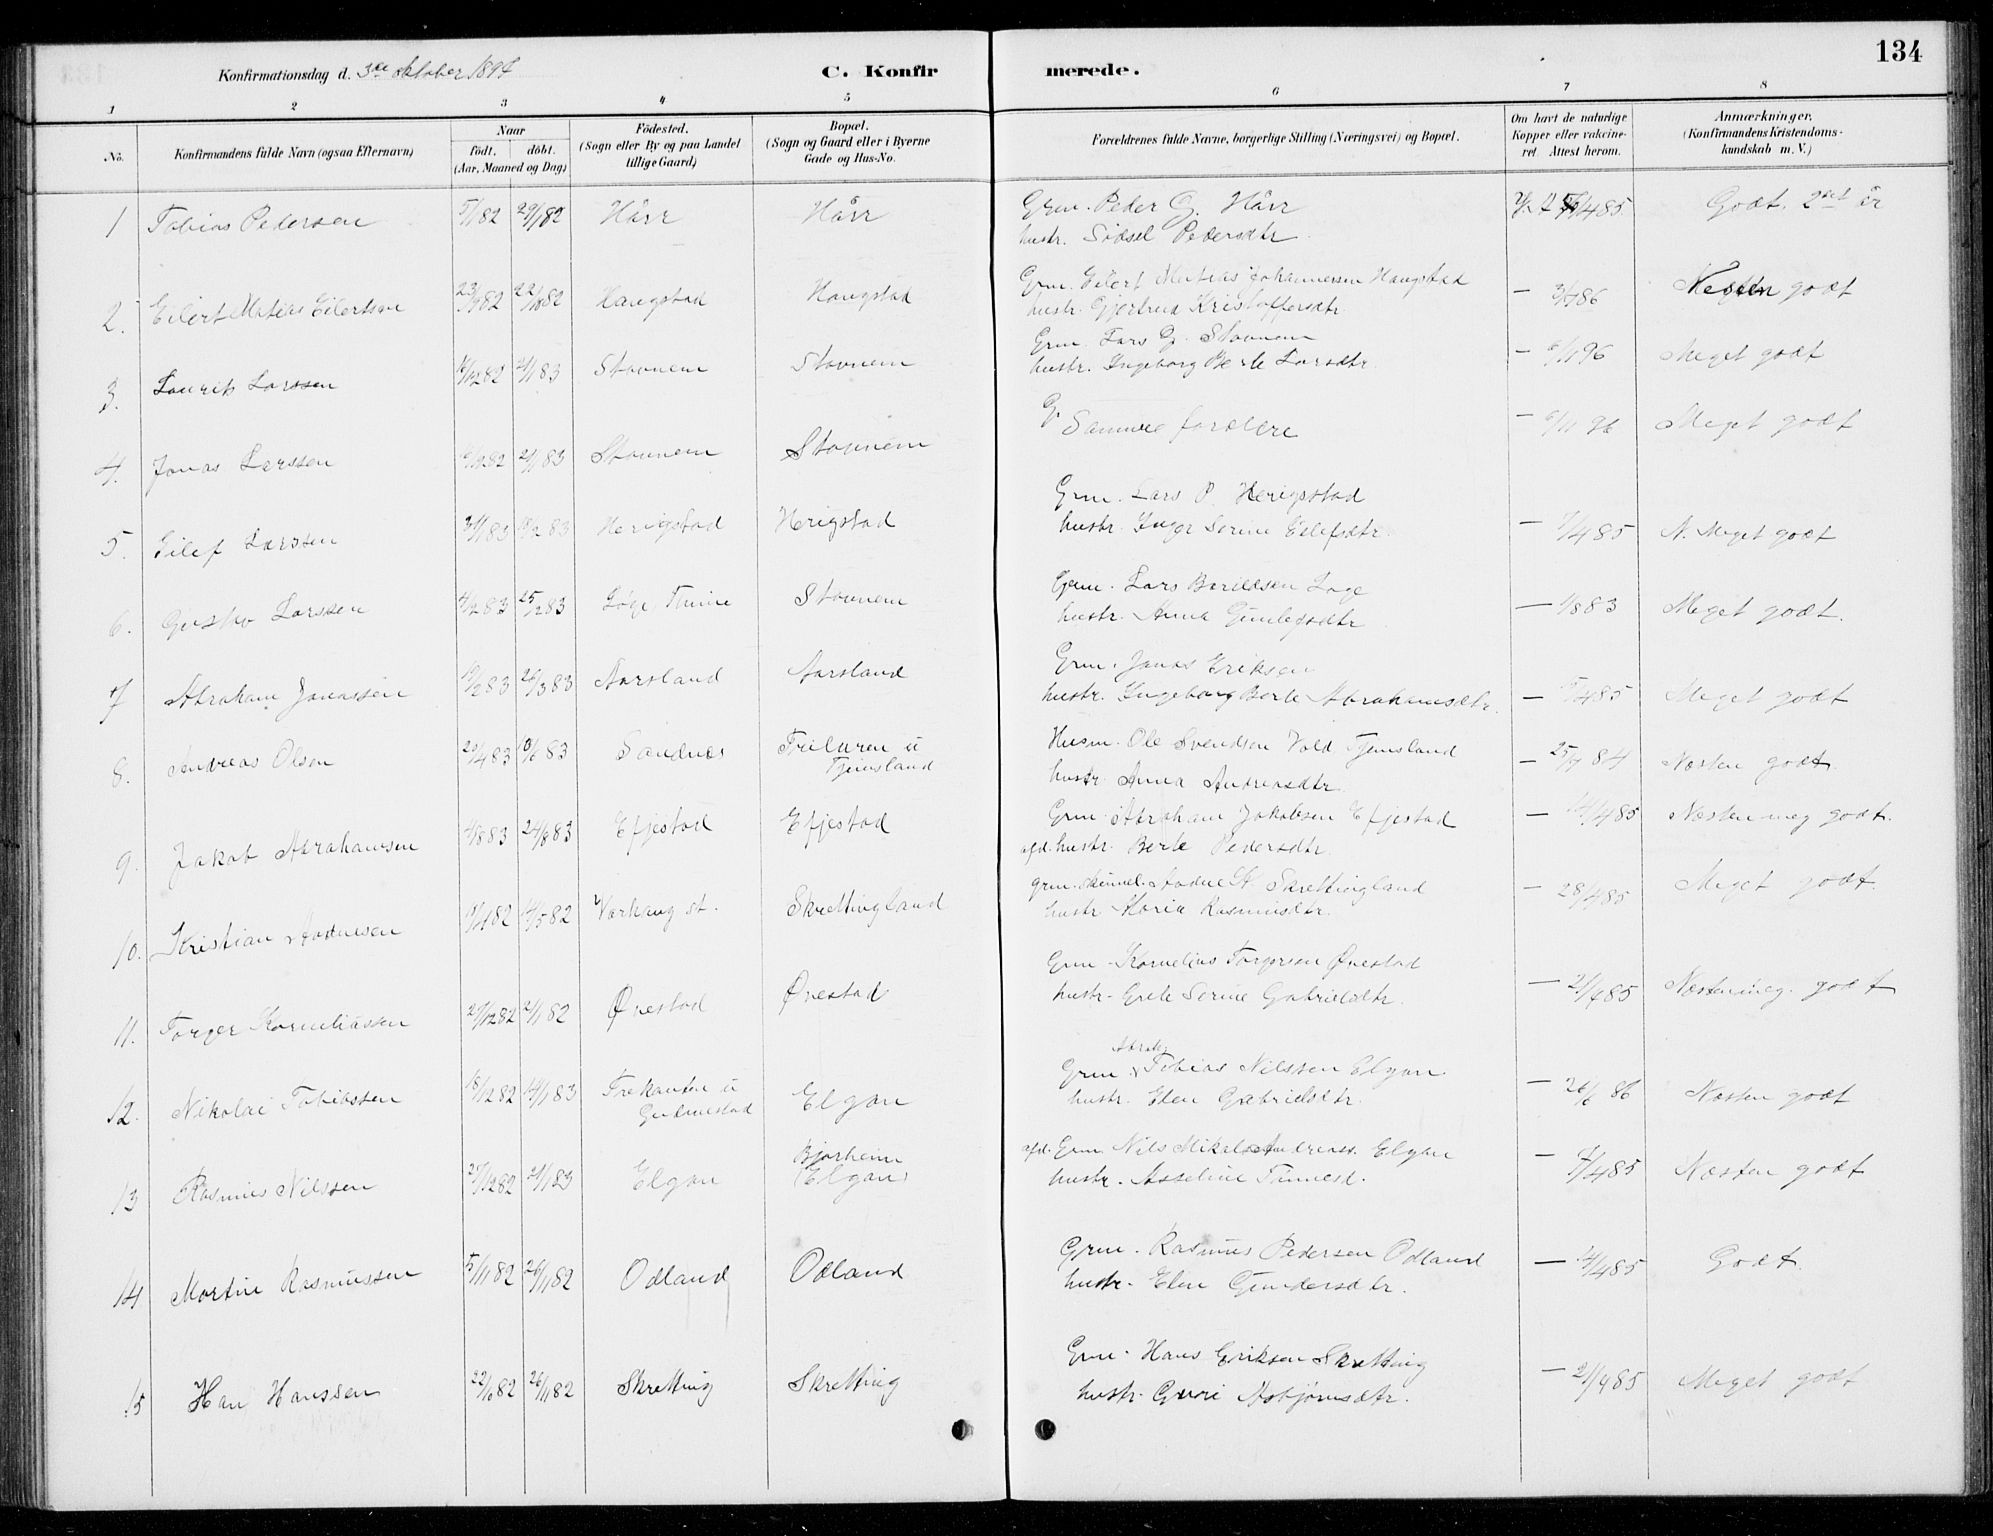 134
Konfirmationsdag d. 3die oktober 1897
C. Konfirmerede.
1 2 3 4 5 6 7 8
No.
Konfirmandens fulde Navn (ogsaa Efternavn)
Naar
födt. döbt.
(Aar, Maaned og Dag)
Födested.
(Sogn eller By og paa Landet
tillige Gaard)
Bopæl.
(Sogn og Gaard eller i Byerne
Gade og Hus-No.
Forældrenes fulde Navne, borgerlige Stilling (Næringsvei) og Bopæl.
Om havt de naturlige
Kopper eller vakcine-
ret. Attest herom.
Anmærkninger,
(Konfirmandens Kristendoms-
kundskab m. V.)
1 Tobias Pedersen 5/1 82 29/1 82 Hårr Hårr
Grm. Peder G. Hårr
hustr. Sidsel Pedersdtr.
Godt. 2det år
2. Eilert Matias Eilertsen 22/10 82 Haugstad Haugstad
Grm. Eilert Matias Johannessen Haugstad
hustr. Gjertrud Kristoffersdtr.
Nesten godt
3. Laurits Larssen 21/1 83 Stovnem Stovnem
Grm. Lars G. Stovnem
hustr. Ingeborg Berte Larsdtr.
— 6/11 96 Meget godt
4. Jonas Larssen 21/1 83 Stovnem Stovnem
Samme forældre
— 6/11 96 Meget godt
5. Eilef Larssen 31/1 83 18/2 83 Herigstad Herigstad
Grm. Lars P. Herigstad
hustr. Inger Serine Eilefsdtr.
— 7/4 85 N. Meget godt
6. Gustav Larssen 4/2 83 25/2 83 Stovnem
Grm. Lars Bertilsen
hustr. Anna Gunlefsdtr
— 1/8 83 Meget godt.
7 Abraham Jonassen 19/2 83 26/3 83 Aarsland Aarsland
Grm. Jonas Eriksen
hustr. Ingeborg Berte Abrahamsdtr.
— Meget godt
8. Andreas Olsen 20/4 83 10/6 83 Sandnes
Tjemsland
Husm. Ole Svendsen Vold Tjemsland
hustr. Anna Andreasdtr.
— 25/7 84 Næsten godt.
9. Jakob Abrahamsen 4/8 83 24/8 83 Efjestad Efjestad
Grm. Abraham Jakobsen Efjestad
afd. hustr. Berte Pedersdtr.
— 14/4 85 Næsten meg godt.
10. Kristian Aadnesen 14/5 82 Varhaug st. Skrettingland
Aadne A. Skrettingland
hustr. Maria Rasmusdtr.
— 28/4 85 Meget godt.
11. Torger Korneliussen Ønestad Ønestad
Grm. Kornelius Torgersen Ønestad
hustr. Grete Serine Gabrielsdtr.
— 21/4 85 Næsten meg. godt
12. Nikolai Tobiassen 18/12 82 14/1 83 Trekanten u
Gudmestad
Elgan
Grm. Tobias Nilssen Elgan.
hustr. Elen Gabrielsdtr.
— 26/6 86 Næsten godt
13 Rasmus Nilssen 27/12 82 21/1 83 Elgan Bjorheim
(Elgan)
afd. Grm Nils Mikal Andreass. Elgan
hustr. Asseline Tinnesd.
— 7/4 85 Næsten godt
14 Martin Rasmussen 5/11 82 26/11 82 Odland Odland
Grm. Rasmus Pedersen Odland
hustr. Elen Gundersdtr.
— 14/4 85 Godt.
15 Han Hanssen 22/10 82 26/11 82 Skretting Skretting
Grm. Hans Eriksen Skretting
hustr. Guri Asbjørnsdtr.
— 21/4 85 Meget godt